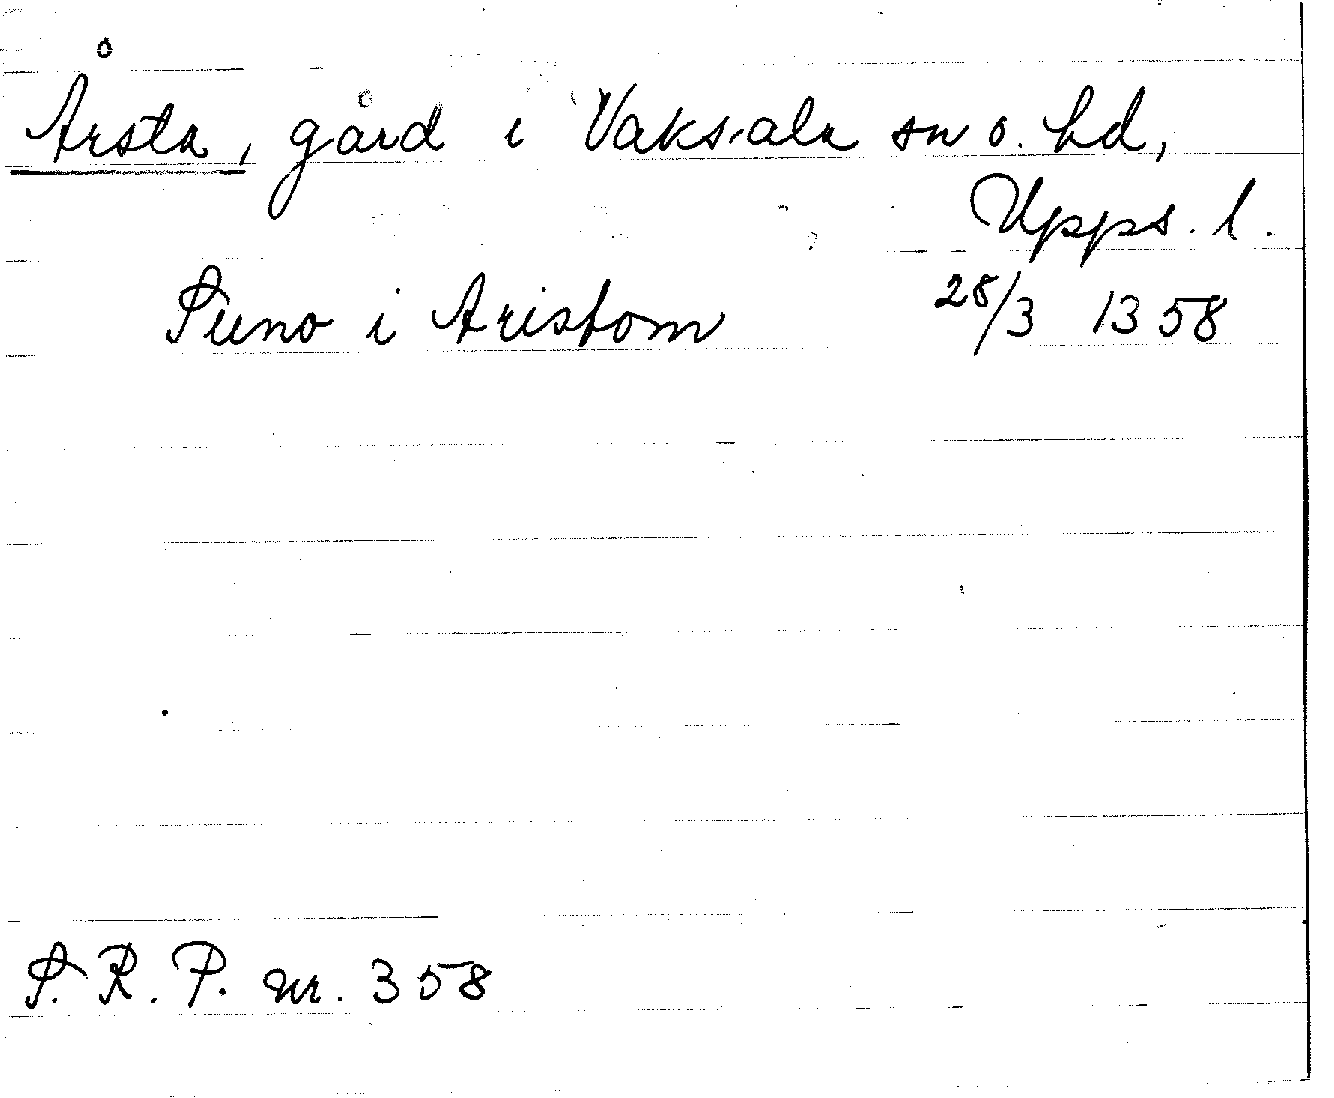 Årsta, gård i Vaksala sn o. hd,
Upps. l.
Suno i Aristom 28/3 1358
S. R. P. nr. 358